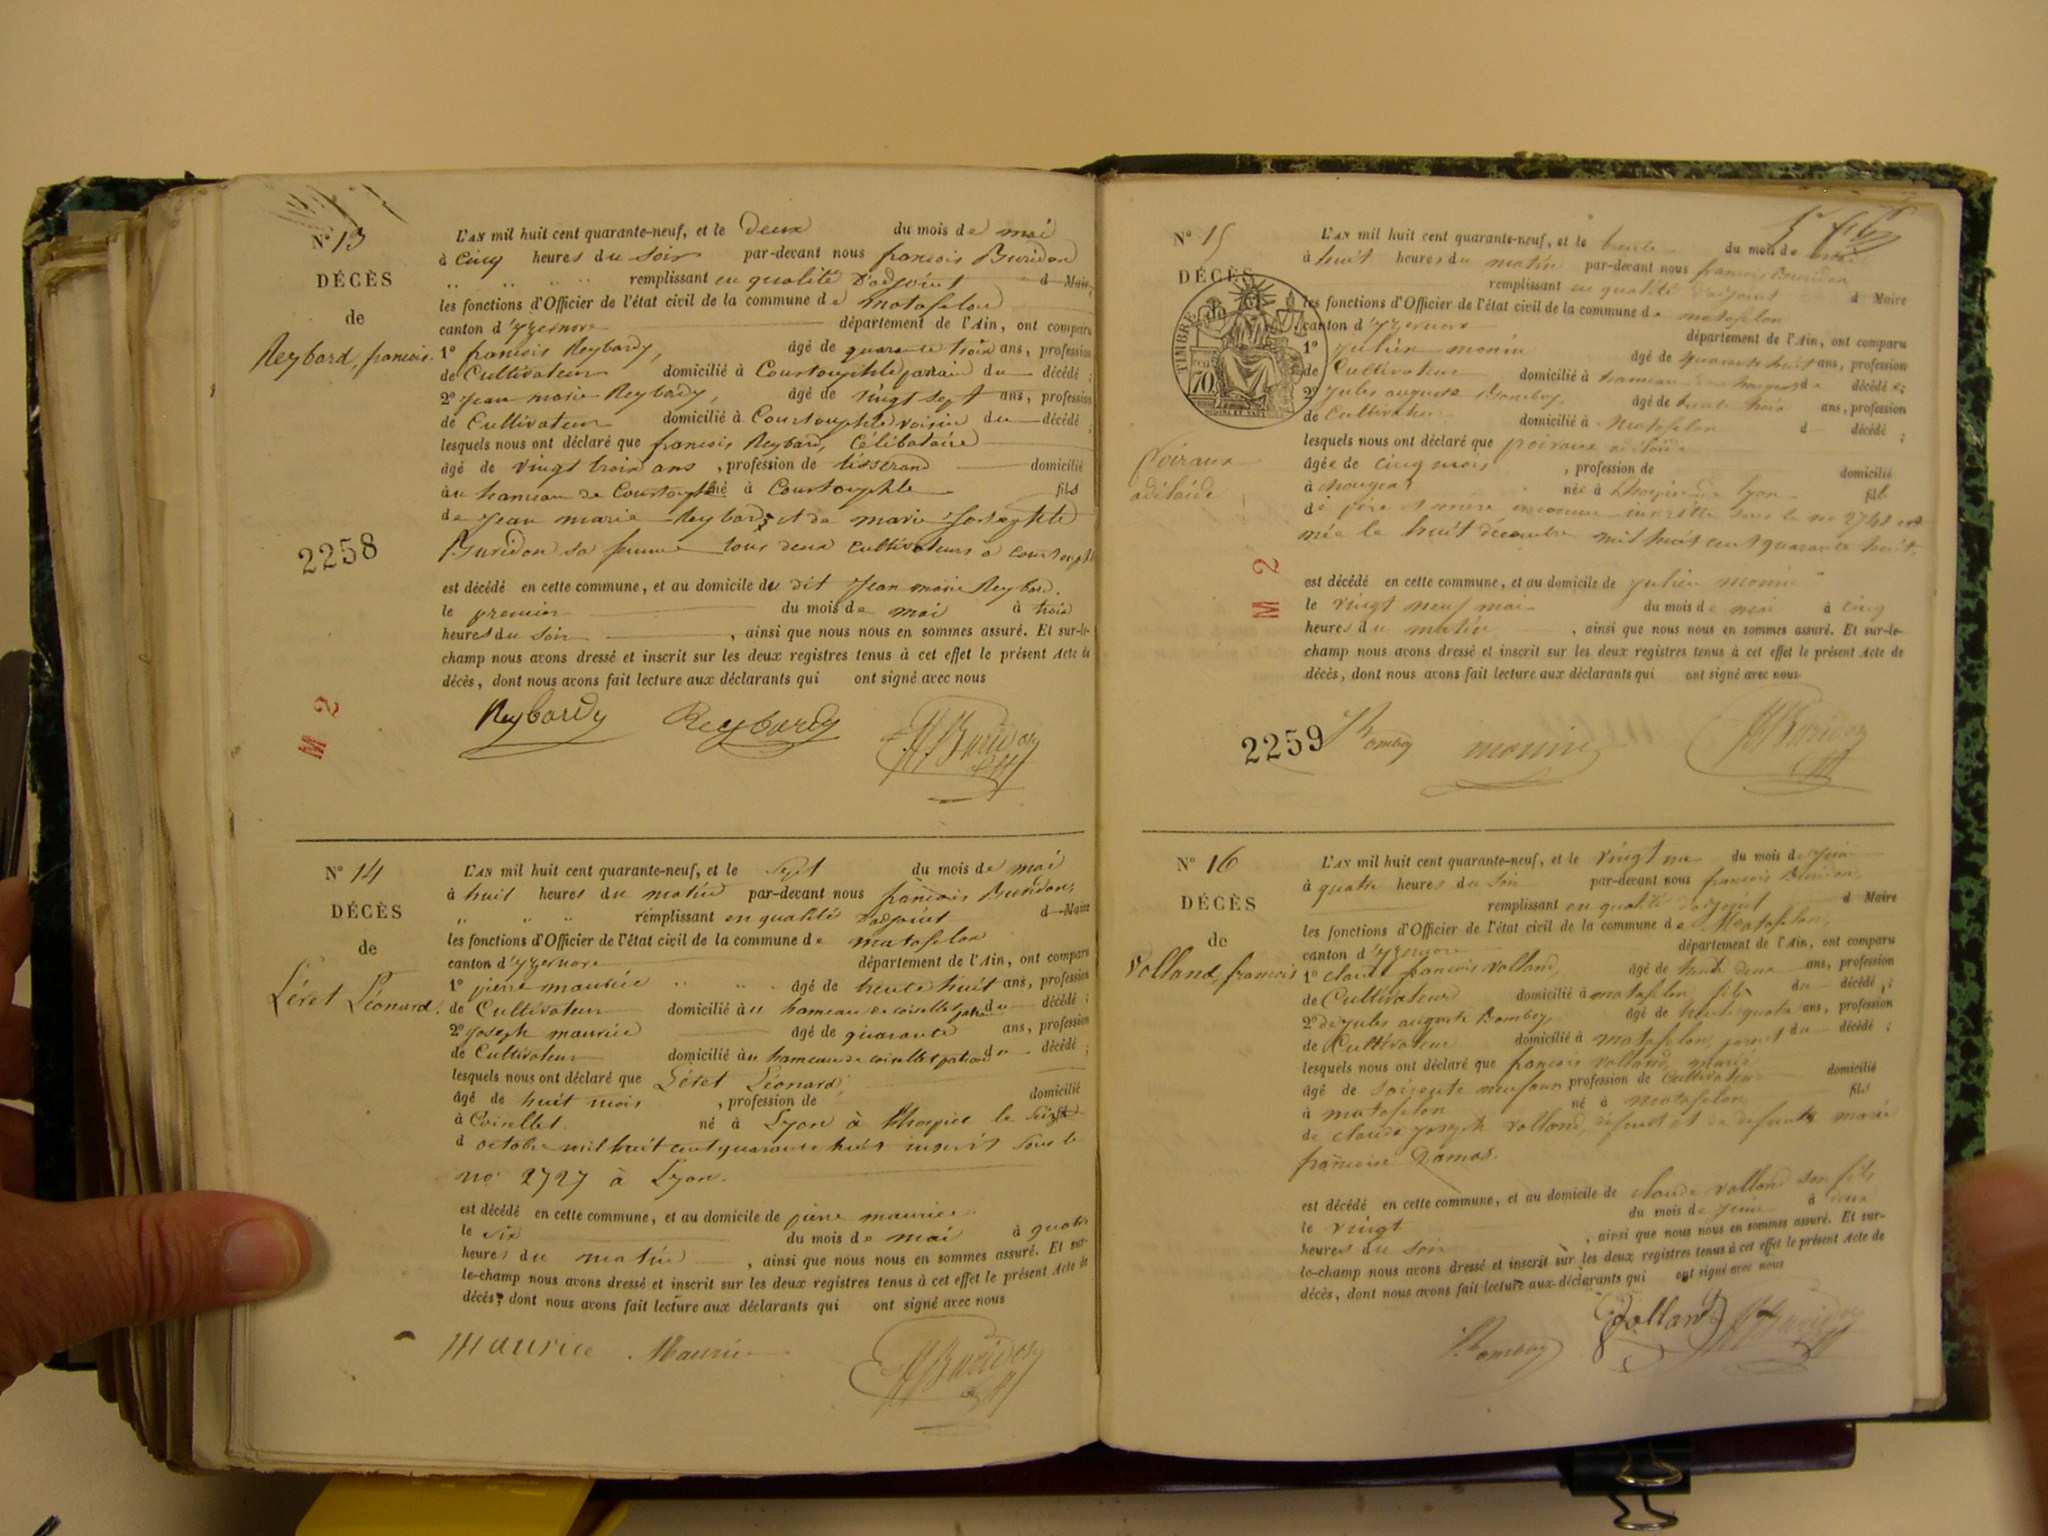 Nº 13
DÉCÈS
de
Reybard, francois.
2258
M 2
L'AN mil huit cent quarante-neuf, et le deux du mois de mai
à cinq heures du soir par-devant nous francois Buridon
remplissant en qualité d'adjoint d Maire,
les fonctions d'Officier de l'état civil de la commune de matafelon
canton d'yzernore département de l'Ain, ont comparu
1º francois Reybardy, âgé de quarante trois ans, profession
de Cultivateur domicilié à Courtouphle parrain du décédé ;
2º Jean marie Reybardy, âgé de vingt sept ans, profession
de Cultivateur domicilié à Courtouphle voisin du décédé ;
lesquels nous ont déclaré que francois Reybard, Célibataire
âgé de vingt trois ans , profession de tisserand domicilié
au hameau de Courtouphle né à Courtouphle fils
de Jean marie Reybard, et de marie Josephte
Buridon sa femme tous deux cultivateurs a courtouphle
est décédé en cette commune, et au domicile du dit Jean marie Reybard.
le premier du mois de mai à trois
heures du soir , ainsi que nous nous en sommes assuré. Et sur-le-
champ nous avons dressé et inscrit sur les deux registres tenus à cet effet le présent Acte de
décès, dont nous avons fait lecture aux déclarants qui ont signé avec nous
Reybardy Reybardy Buridon
Nº 14
DÉCÈS
de
Léret Léonard.
L'AN mil huit cent quarante-neuf, et le sept du mois de mai
à huit heures du matin par-devant nous francois Buridon,
remplissant en qualité d'adjoint d Maire
les fonctions d'Officier de l'état civil de la commune de matafelon
canton d'yzernore département de l'Ain, ont comparu
1º pierre maurice âgé de trente huit ans, profession
de Cultivateur domicilié au hameau de coisellet du décédé ;
2º Joseph maurice âgé de quarante ans, profession
de Cultivateur domicilié au hameau de coisellet du décédé ;
lesquels nous ont déclaré que Léret Léonard,
âgé de huit mois , profession de domicilié
à Coisellet né à Lyon à l'hospice le seize
d octobre mil huit cent quarante huit inscrit sous le
no 2727 à Lyon.
est décédé en cette commune, et au domicile de pierre maurice
le six du mois de mai à quatre
heures du matin , ainsi que nous nous en sommes assuré. Et sur-
le-champ nous avons dressé et inscrit sur les deux registres tenus à cet effet le présent Acte de
décès, dont nous avons fait lecture aux déclarants qui ont signé avec nous
Maurice Maurice Buridon
Nº 15
DÉCÈS
TIMBRE
70
Poiraux
adélaïde
M 2
2259
L'AN mil huit cent quarante-neuf, et le trente du mois de mai
à huit heures du matin par-devant nous francois Buridon
remplissant en qualité d'adjoint d Maire
les fonctions d'Officier de l'état civil de la commune de matafelon
canton d'yzernore département de l'Ain, ont comparu
1º Julien monin âgé de quarante huit ans, profession
de Cultivateur domicilié à hameau décédée;
2º Jules auguste Bomboy, âgé de trente trois ans, profession
de Cultivateur domicilié à Matafelon d décédé ;
lesquels nous ont déclaré que poiraux adélaïde
âgée de cinq mois , profession de domicilié
à née à l'hospice de Lyon fil
de père et mère inconnus inscritte sous le no 2748 est
née le huit décembre mil huit cent quarante huit.
est décédé en cette commune, et au domicile de Julien monin
le vingt neuf mai du mois de mai à cinq
heures du matin , ainsi que nous nous en sommes assuré. Et sur-le-
champ nous avons dressé et inscrit sur les deux registres tenus à cet effet le présent Acte de
décès, dont nous avons fait lecture aux déclarants qui ont signé avec nous
Bomboy monin Buridon
Nº 16
DÉCÈS
de
Volland, francois
L'AN mil huit cent quarante-neuf, et le vingt un du mois de Juin
à quatre heures du soir par-devant nous francois Buridon,
remplissant en qualité d'adjoint d Maire
les fonctions d'Officier de l'état civil de la commune de Matafelon,
canton d'yzernore département de l'Ain, ont comparu
1º claude francois Volland, âgé de trente deux ans, profession
de Cultivateur domicilié à matafelon fils du décédé, ;
2º de Jules auguste Bomboy, âgé de trente quatre ans, profession
de Cultivateur domicilié à matafelon, parent du décédé ;
lesquels nous ont déclaré que francois volland, marié
âgé de soixante neuf ans profession de Cultivateur domicilié
à matafelon né à matafelon fils
de claude Joseph Volland, défunt et de defunte marie
francoise Damas.
est décédé en cette commune, et au domicile de claude volland son fils
le vingt du mois de Juin à deux
heures du soir , ainsi que nous nous en sommes assuré. Et sur-
le-champ nous avons dressé et inscrit sur les deux registres tenus à cet effet le présent Acte de
décès, dont nous avons fait lecture aux déclarants qui ont signé avec nous
Bomboy Volland Buridon